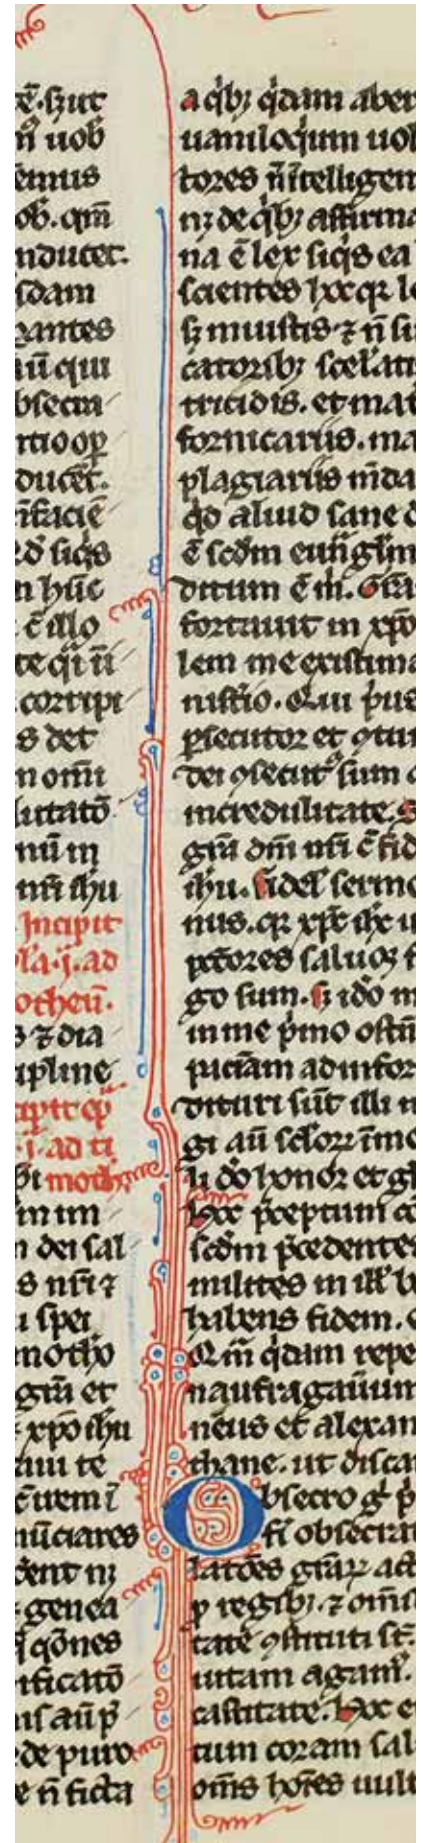 tē. sicut
n̄ uob
ēmus
ob. qm̄
nducet.
sdam
rantes
aū qui
bsecra
ntio oꝑ
ducēt.
nfaciē
siqͥs
n hūc
ē illo
te qͥ n̄
corripi
s det
n omī
lutatō
nū in
nr̄i ihu
Incipit
pl̄a .i. ad
otheū.
s ⁊ dia
ipline
cipit ep̄
.i. ad ti
bi moth
m im
n dei sal
s nr̄i ⁊
u spei
motħo
gr̄a et
xp̄o ihu
aui te
nūciares
dent in
genea
qōnes
ificatō
is aū p̄
de puro
e n̄ ficta
a qͥbꝫ qͥdam aber
uaniloqͥum uol
tores n̄ ītelligen
nꝫ de qͥbꝫ affirma
na ē lex siqͥs ea
scientes hoc qꝛ le
sꝫ iniustis ⁊ n̄ su
catoribꝫ scel̄ati
tricidis. et mat
fornicariis. ma
plagiariis m̄da
qd̄ aliud sane d
ē scd̄m euāgl̄iu
ditum ē m̄. Gr̄a
fortauit in xp̄o
lem me existima
nist̄io. Qui pͥus
ꝑsecutor et ꝯtu
dei ꝯsecutꝰ sum q
incredulitate. S
gr̄a dn̄i nr̄i c̄ fid
ihu. Fidel̄ sermo
nus. qꝛ xp̄c ihc u
pctōres saluos f
go sum. sꝫ id̄o m
in me pͥmo ostn̄
pacīam ad infor
dituri sūt illi in
gi aū sclōꝝ īmo
li dō honor et gl
Hoc p̄ceptum cō
scd̄m p̄cedentes
milites in ill̄ b
habens fidem.
Qm̄ qͥdam repe
naufragauerun
neus et alexan
thane. ut disca
Obsecro gͦ p
fi obsecrat
latōes gr̄aꝝ act
ꝓ regibꝫ. ⁊ omīb
tate ꝯstituti st̄.
uitam agamꝰ.
castitate. Hoc e
tum coram sal
om̄s hoīes uult